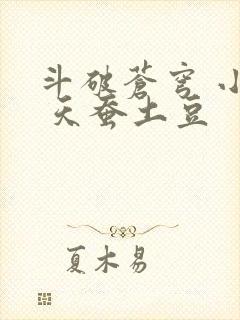 斗破苍穹 小
天蚕土豆
夏木易